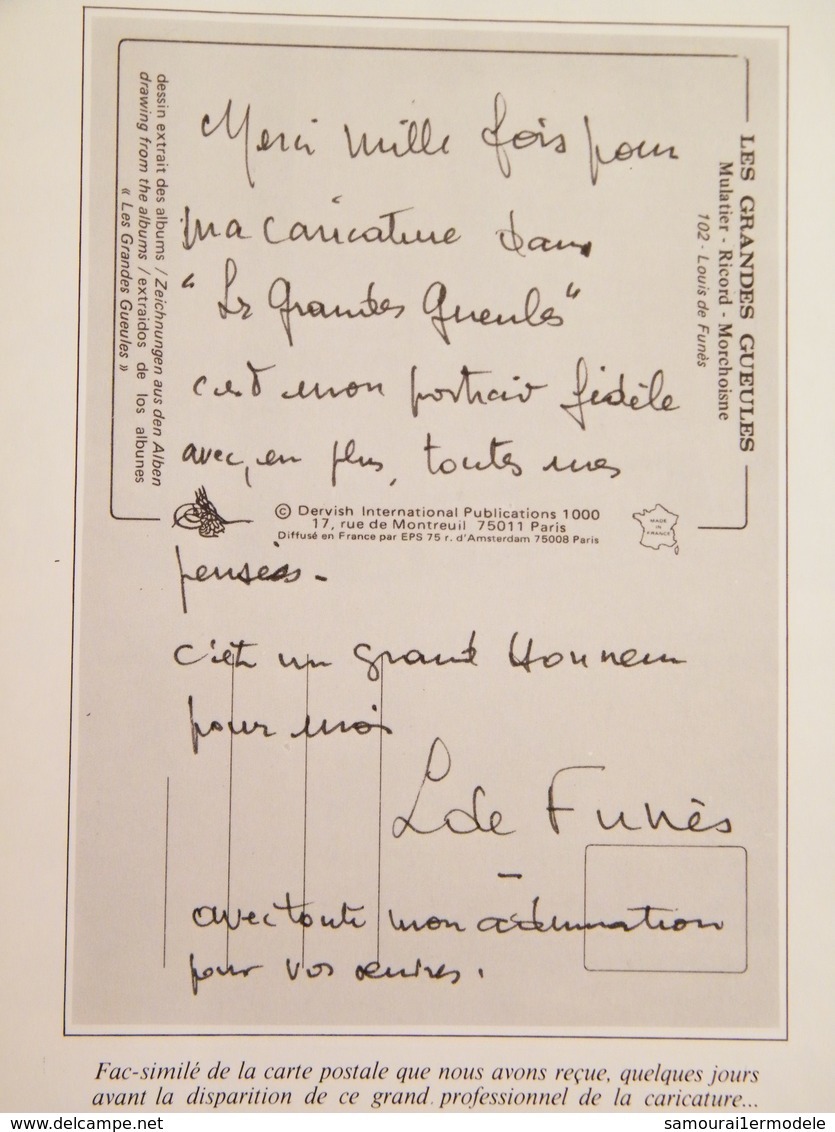 LES GRANDES GUEULES
Mulatier - Ricord - Morchoisne
102 - Louis de Funès
dessin extrait des albums / Zeichnungen aus den Alben
drawing from the albums / extraidos de los albunes
« Les Grandes Gueules »
Merci mille fois pour
ma caricature dans
"Les Grandes Gueules"
c'est mon portrait fidèle
avec, en plus, toutes mes
© Dervish International Publications 1000
17, rue de Montreuil 75011 Paris
Diffusé en France par EPS 75 r. d'Amsterdam 75008 Paris
MADE IN FRANCE
pensées -
c'est un grand Honneur
pour moi
L de Funès
avec toute mon admiration
pour vos
Fac-similé de la carte postale que nous avons reçue, quelques jours
avant la disparition de ce grand professionnel de la caricature...
samourai1ermodele